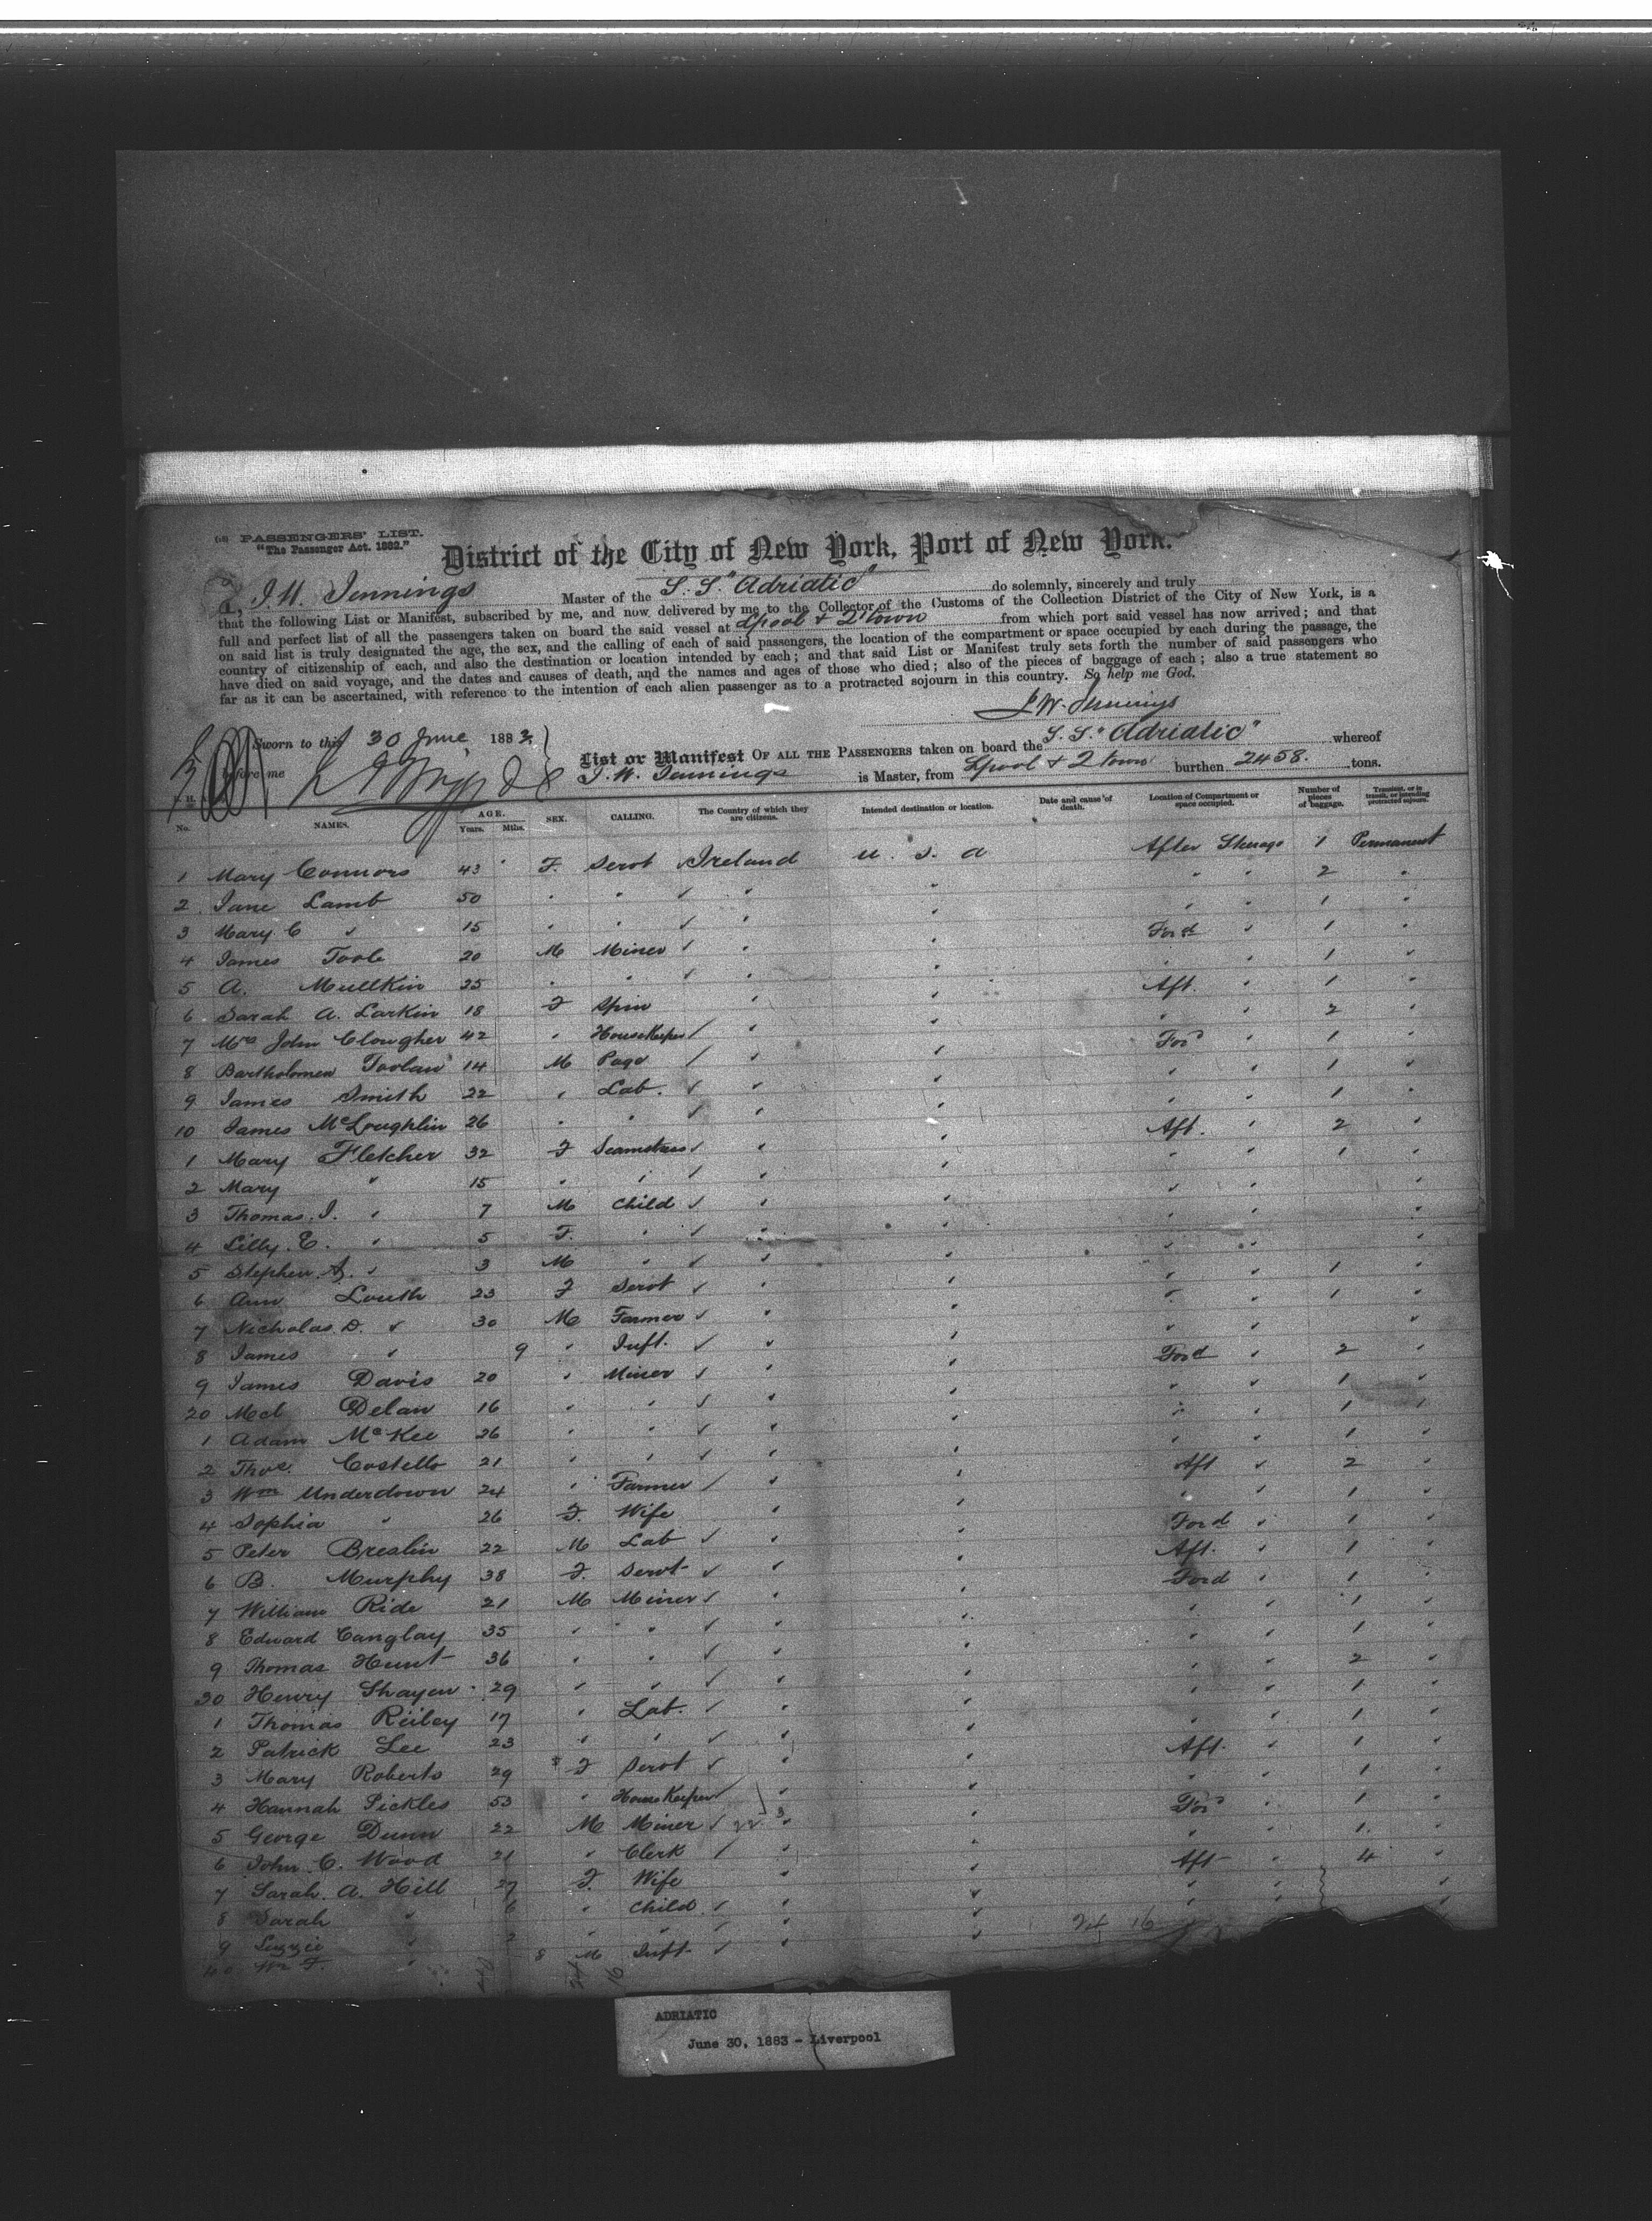 PASSENGERS' LIST.
"The Passenger Act. 1882."
District of the City of New York, Port of New York.
I, J. W. Jennings Master of the S. S. "Adriatic" do solemnly, sincerely and truly
that the following List or Manifest, subscribed by me, and now delivered by me to the Collector of the Customs of the Collection District of the City of New York, is a
full and perfect list of all the passengers taken on board the said vessel at Lpool & Qtown from which port said vessel has now arrived; and that
on said list is truly designated the age, the sex, and the calling of each of said passengers, the location of the compartment or space occupied by each during the passage, the
country of citizenship of each, and also the destination or location intended by each; and that said List or Manifest truly sets forth the number of said passengers who
have died on said voyage, and the dates and causes of death, and the names and ages of those who died; also of the pieces of baggage of each; also a true statement so
far as it can be ascertained, with reference to the intention of each alien passenger as to a protracted sojourn in this country. So help me God.
J W. Jennings
Sworn to this 30 June 1883
before me
List or Manifest OF ALL THE PASSENGERS taken on board the S. S. "Adriatic" whereof
J. W. Jennings is Master, from Lpool & Qtown burthen 2458. tons.
No. NAMES. AGE. Years. Mths. SEX. CALLING. The Country of which they are citizens. Intended destination or location. Date and cause of death. Location of Compartment or space occupied. Number of pieces of baggage. Transient, or in transit, or intending protracted sojourn.
1 Mary Connors 43 F. Servt Ireland U. S. A After Steerage 1 Permanent
2 Jane Lamb 50 " " " " " " 2 "
3 Mary C " 15 " " " " " " 1 "
4 James Toole 20 M Miner " " Ford " 1 "
5 A. Mullkin 25 " " " " " " 1 "
6 Sarah A. Larkin 18 F Spin " " Aft. " 1 "
7 Mrs John Clougher 42 " HouseKeeper " " " " 2 "
8 Bartholomew Toolan 14 M Page " " For " 1 "
9 James Smith 22 " Lab. " " " " 1 "
10 James McLoughlin 26 " " " " " " 1 "
1 Mary Fletcher 32 F Seamstress " " Aft. " 2 "
2 Mary " 15 " " " " " " 1 "
3 Thomas. J. " 7 M Child " " " " "
4 Lilly. E. " 5 F. " " " " " "
5 Stephen. A. " 3 M " " " " " "
6 Ann Louth 23 F Servt " " " " 1 "
7 Nicholas D. " 30 M Farmer " " " " 1 "
8 James " 9 " Inft. " " " " "
9 James Davis 20 " Miner " " Ford " 2 "
20 Mcl Delan 16 " " " " " " 1 "
1 Adam McKee 26 " " " " " " 1 "
2 Thos. Costello 21 " " " " " " 1 "
3 Wm Underdown 24 " Farmer " " Aft " 2 "
4 Sophia " 26 F. Wife " " " " 1 "
5 Peter Breslin 22 M Lab " " Ford " 1 "
6 B. Murphy 38 F. Servt " " Aft. " 1 "
7 William Ride 21 M Miner " " Ford " 1 "
8 Edward Canglay 35 " " " " " " 1 "
9 Thomas Hunt 36 " " " " " " 1 "
30 Henry Shayen 29 " " " " " " 2 "
1 Thomas Reiley 17 " Lab. " " " " 1 "
2 Patrick Lee 23 " " " " " " 1 "
3 Mary Roberts 29 F Servt " " Aft. " 1 "
4 Hannah Pickles 53 " HouseKeeper " " " " 1 "
5 George Dunn 22 M Miner " " For " 1 "
6 John. C. Wood 21 " Clerk " " " " 1 "
7 Sarah. A. Hill 27 F. Wife " " Aft " 4 "
8 Sarah " 6 " Child " " " " "
9 Lizzie " 2 " " " "
40 Wm F. " 8 M Inft " "
24 16
ADRIATIC
June 30, 1883 - Liverpool